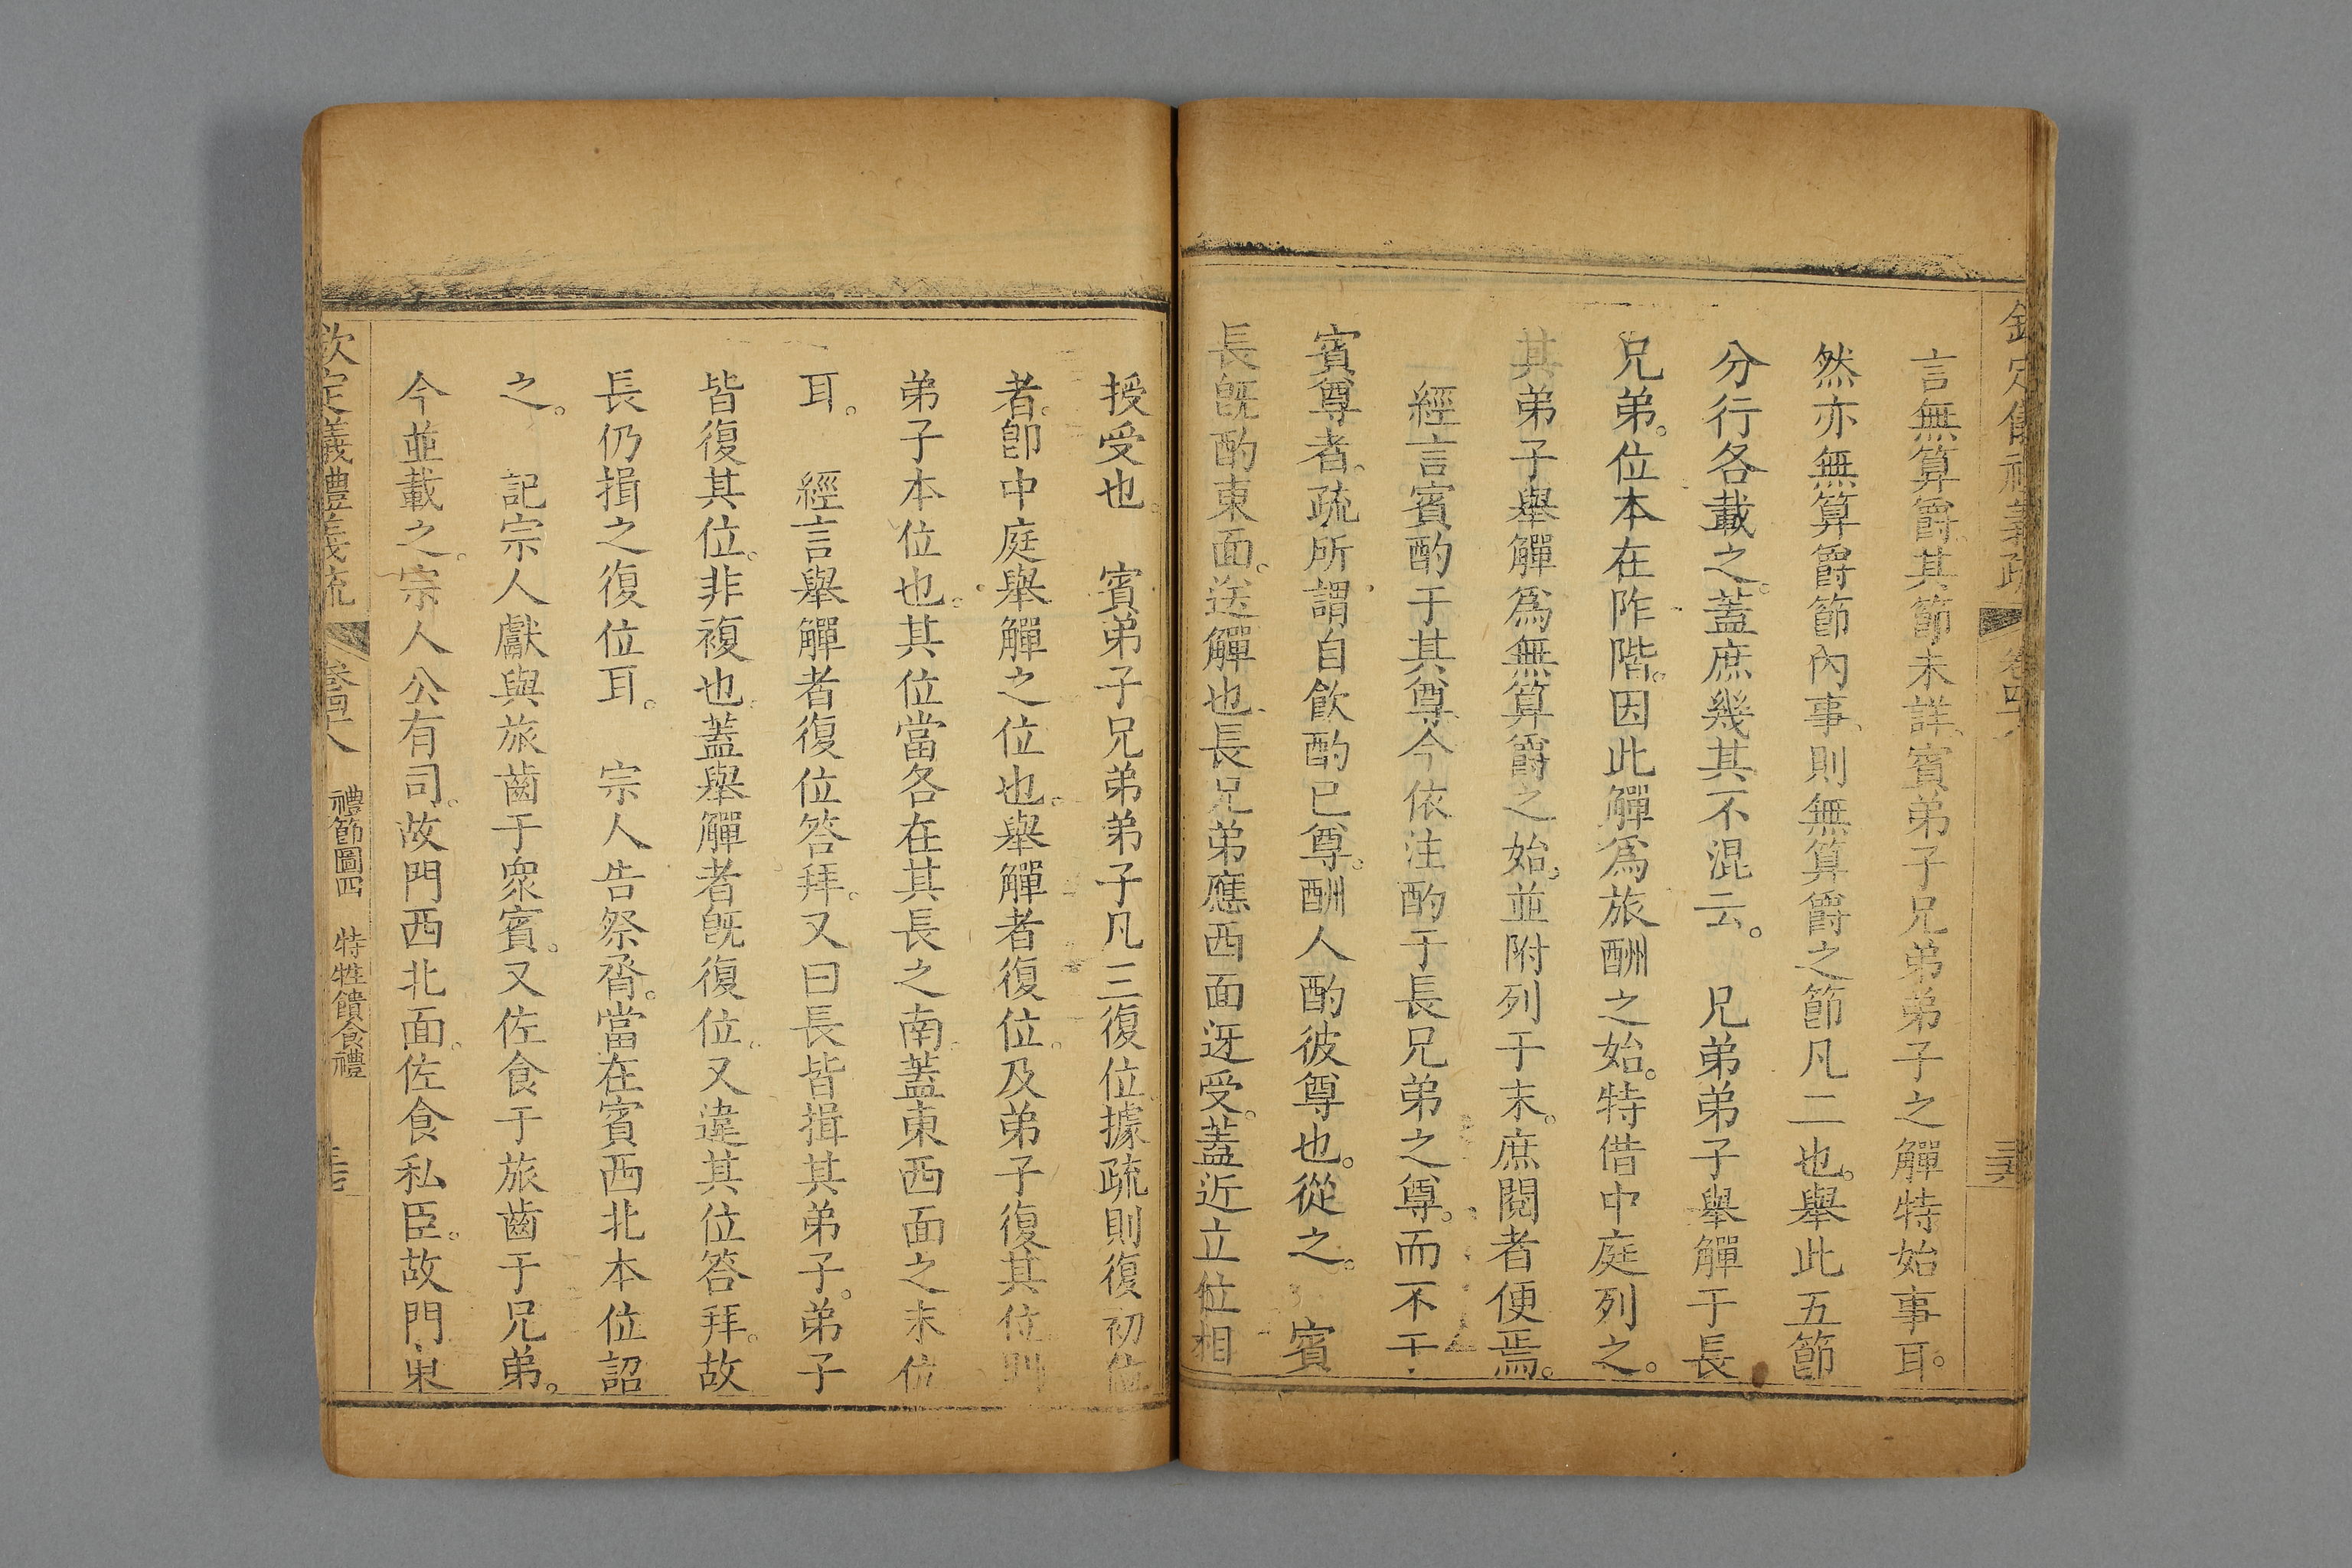 欽定儀禮義疏 卷四十八
言無算爵其節未詳賓弟子兄弟弟子之觶特始事耳。
然亦無算爵節內事、則無算爵之節凡二也。舉此五節
分行各載之。蓋庶幾其不混云。 兄弟弟子舉觶于長
兄弟。位本在阼階。因此觶爲旅酬之始。特借中庭列之。
其弟子舉觶爲無算爵之始。並附列于末。庶閱者便焉。
經言賓酌于其尊、今依注酌于長兄弟之尊。而不于
賓尊者。疏所謂自飲酌已尊。酬人酌彼尊也。從之。 賓
長旣酌東面。送觶也、長兄弟應西面迓受。蓋近立位相
授受也。 賓弟子兄弟弟子凡三復位據疏則復初位
者。卽中庭舉觶之位也。舉觶者復位。及弟子復其位則
弟子本位也。其位當各在其長之南。蓋東西面之末位
耳。 經言舉觶者復位答拜。又曰長皆揖其弟子。弟子
皆復其位。非複也。蓋舉觶者旣復位。又違其位答拜。故
長仍揖之復位耳。 宗人告祭脀。當在賓西北本位詔
之。 記宗人獻與旅齒于衆賓。又佐食于旅齒于兄弟。
今並載之。宗人公有司。故門西北面。佐食私臣。故門東
欽定儀禮義疏 卷四十八 禮節圖四 特牲饋食禮